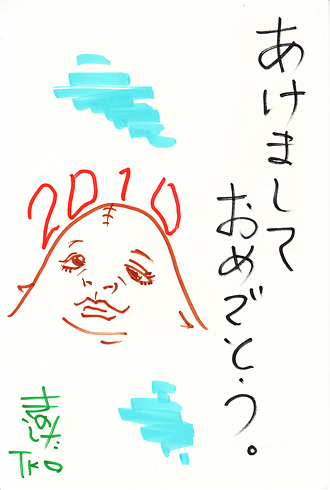 あけまして
おめでとう。
2010
きのした
TKO